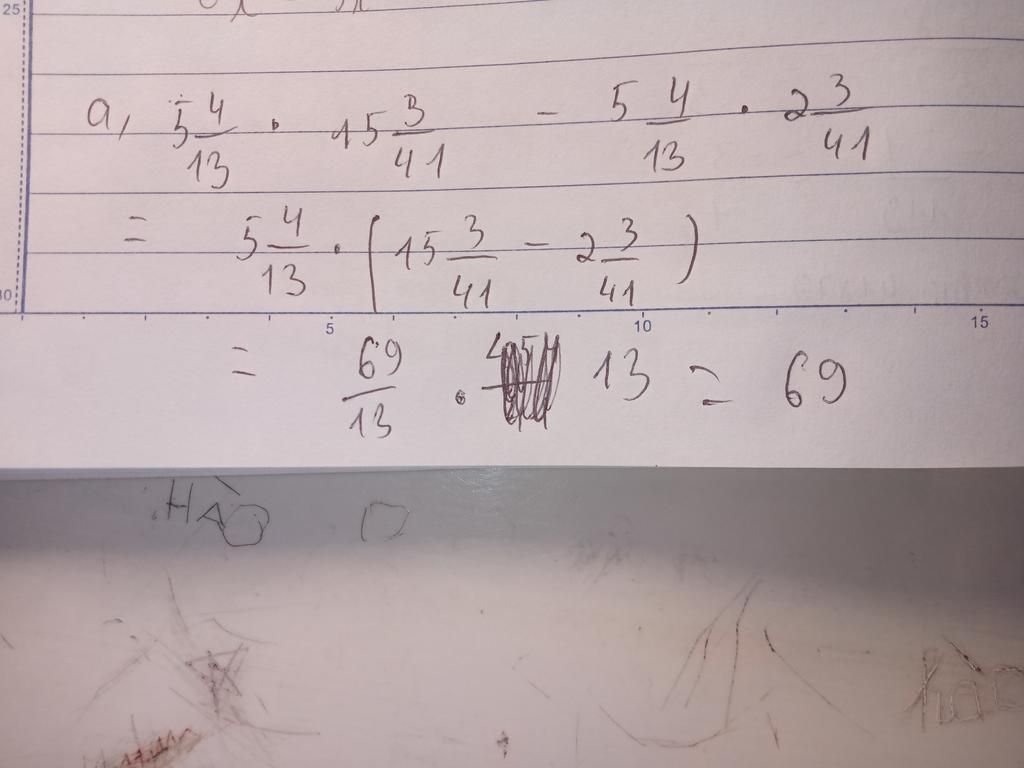 25
a, 5 4/13 . 15 3/41 - 5 4/13 . 2 3/41
= 5 4/13 . (15 3/41 - 2 3/41)
30
5 10 15
= 69/13 . 13 = 69
HÀO